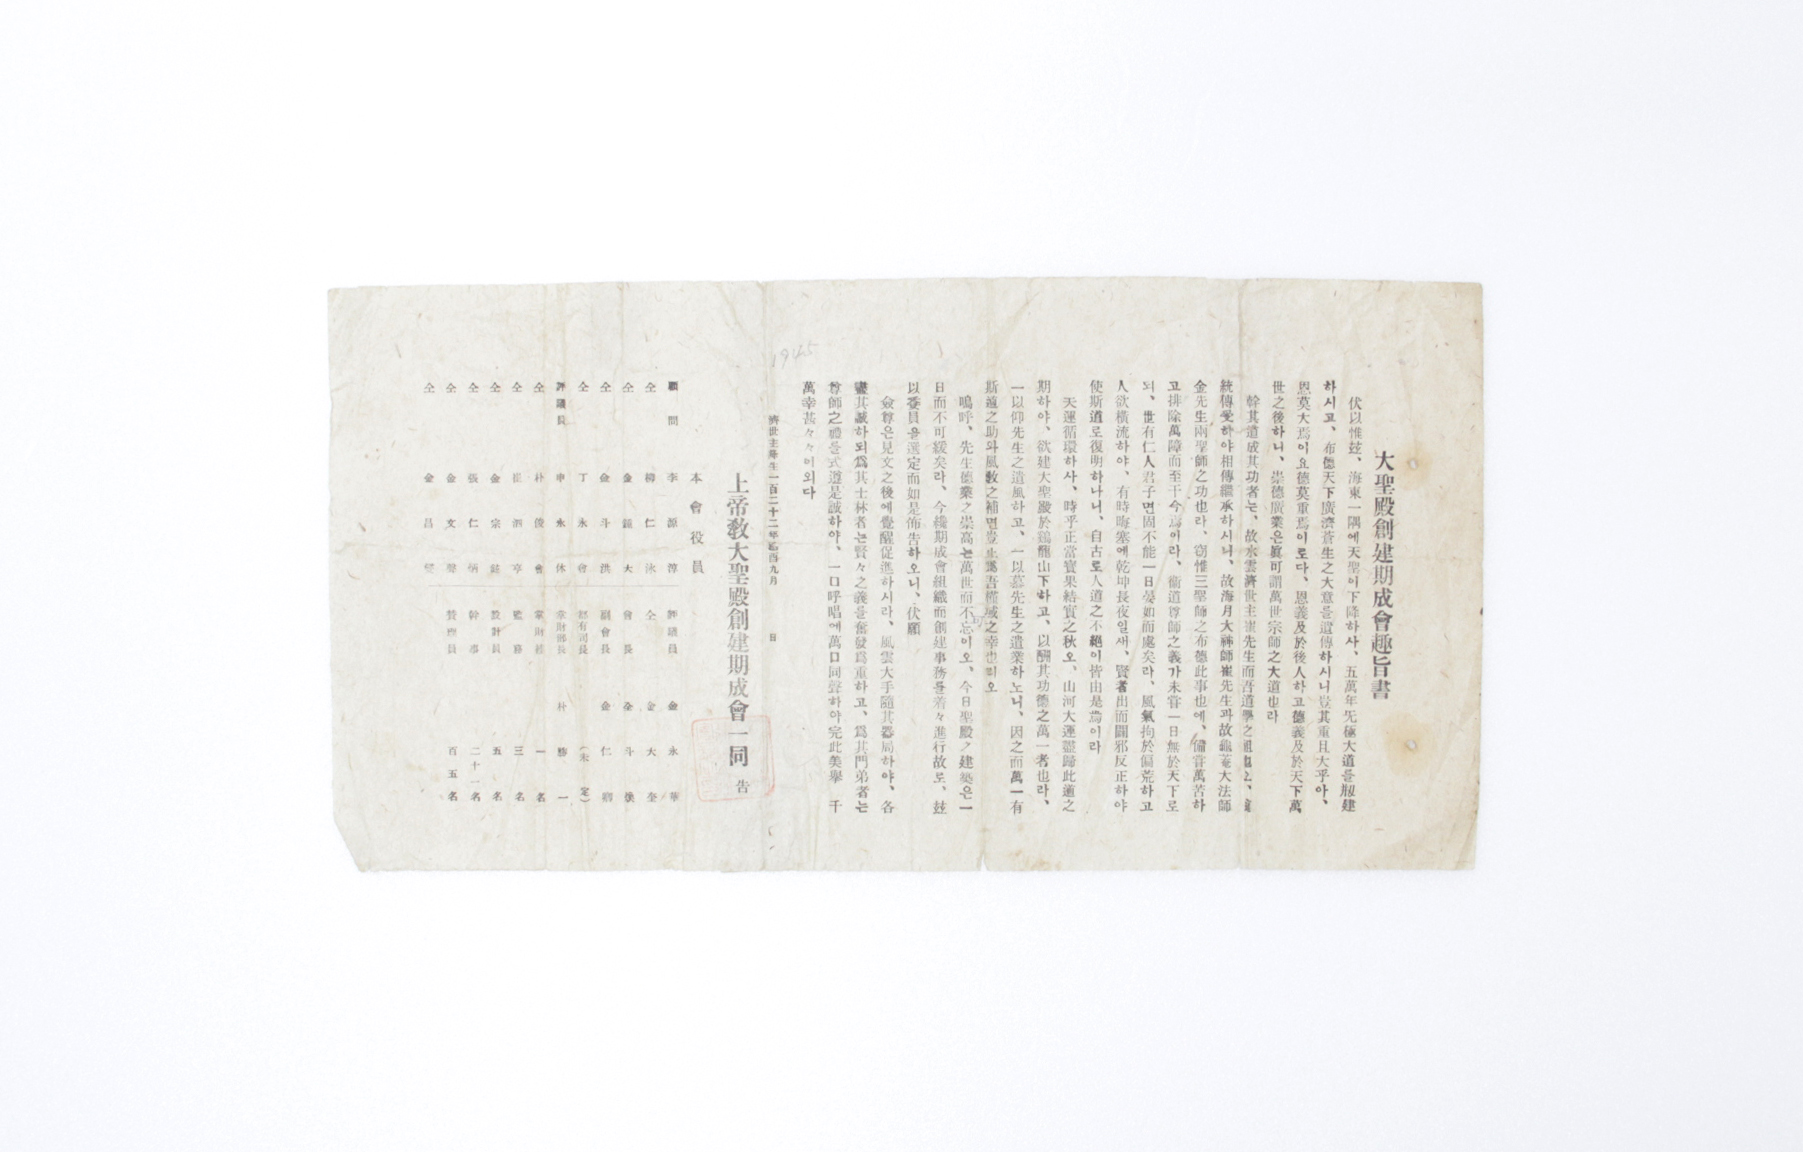 大聖殿創建期成會趣旨書
伏以惟玆、海東一隅에天聖이下降하사、五萬年无極大道를刱建
하시고、布德天下廣濟蒼生之大意를遺傳하시니豈其重且大乎아、
恩莫大焉이요德莫重焉이로다、恩義及於後人하고德義及於天下萬
世之後하니、崇德廣業은眞可謂萬世宗師之大道也라
幹其道成其功者는、故水雲濟世主崔先生而吾道學之
統傳受하야相傳繼承하시니、故海月大神師崔先生과故龜菴大法師
金先生兩聖師之功也라、窃惟三聖師之布德此事也에、備甞萬苦하
고排除萬障而至于今焉이라、衛道尊師之義가未甞一日無於天下로
되、世有仁人君子면固不能一日晏如而處矣라、風氣拘於偏荒하고
人欲橫流하야、有時晦塞에乾坤長夜일새、賢者出而闢邪反正하야
使斯道로復明하나니、自古로人道之不絕이皆由是焉이라
天運循環하사、時乎正當實果結實之秋오、山河大運盡歸此道之
期하야、欲建大聖殿於鷄龍山下하고、以酬其功德之萬一者也라、
一以仰先生之遺風하고、一以慕先生之遺業하노니、因之而萬一有
斯道之助와風敎之補면豈止爲吾槿域之幸也리오
嗚呼、先生德業之崇高는萬世而不忘이오、今日聖殿之建築은一
日而不可緩矣라、今纔期成會組織而創建事務를着々進行故로、玆
以委員을選定而如是佈告하오니、伏願
僉尊은見文之後에覺醒促進하시라、風雲大手隨其器局하야、各
盡其誠하되爲其士林者는賢々之義를奮發爲重하고、爲其門弟者는
尊師之禮를式遵是誠하야、一口呼唱에萬口同聲하야完此美擧 千
萬幸甚々々이외다
1945
濟世主降生一百二十二年乙酉九月 日
上帝敎大聖殿創建期成會一同 告
本會役員
顧問 李源淳 評議員 金永華
仝 柳仁泳 仝 金大奎
仝 金鍾大 會長 全斗煥
仝 金斗洪 副會長 金仁卿
仝 丁永會 經有司長 (未定)
評議長 申永休 掌財部長 朴勝一
仝 朴俊會 掌財補 一名
仝 崔泗亨 監務 三名
仝 金宗鎬 設計員 五名
仝 張仁炳 幹事 二十一名
仝 金文聲 贊襄員 百五名
仝 金昌